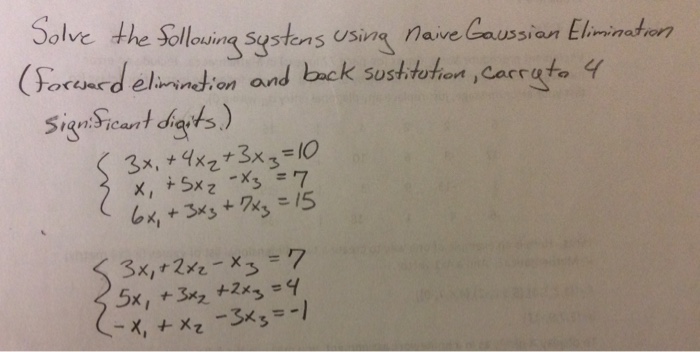 Solve the following systens using naive Gaussian Elimination
(forward elimination and back sustitution, carry to 4
significant digits.)
3x₁ + 4x₂ + 3x₃ = 10
x₁ + 5x₂ - x₃ = 7
6x₁ + 3x₃ + 7x₃ = 15
3x₁ + 2x₂ - x₃ = 7
5x₁ + 3x₂ + 2x₃ = 4
-x₁ + x₂ - 3x₃ = -1